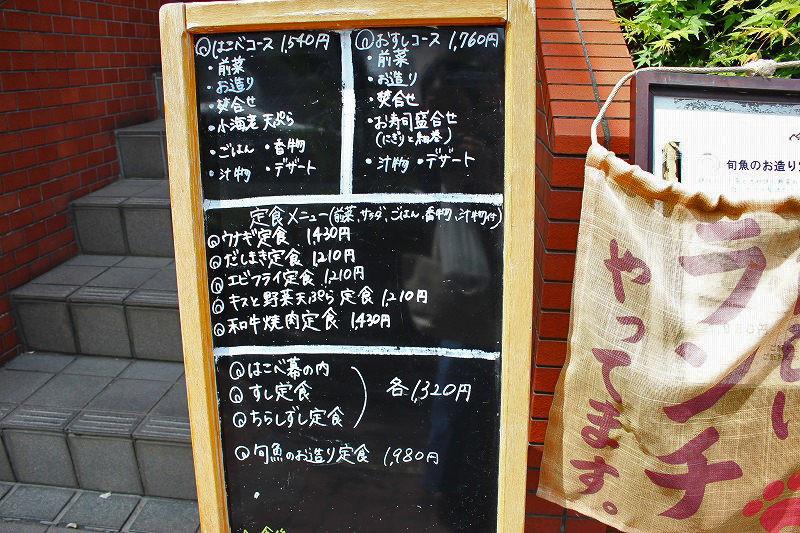 はこべコース 1,540円
・前菜
・お造り
・焚合せ
・小海老天ぷら
・ごはん ・香物
・汁物 ・デザート
おすしコース 1,760円
・前菜
・お造り
・焚合せ
・お寿司盛合せ
(にぎりと細巻)
・汁物 ・デザート
定食メニュー(前菜、サラダ、ごはん、香物、汁物付)
ウナギ定食 1,430円
だしまき定食 1,210円
エビフライ定食 1,210円
キスと野菜天ぷら定食 1,210円
和牛焼肉定食 1,430円
はこべ幕の内
すし定食
ちらしずし定食
各1,320円
旬魚のお造り定食 1,980円
旬魚のお造り
ランチ
やってます。